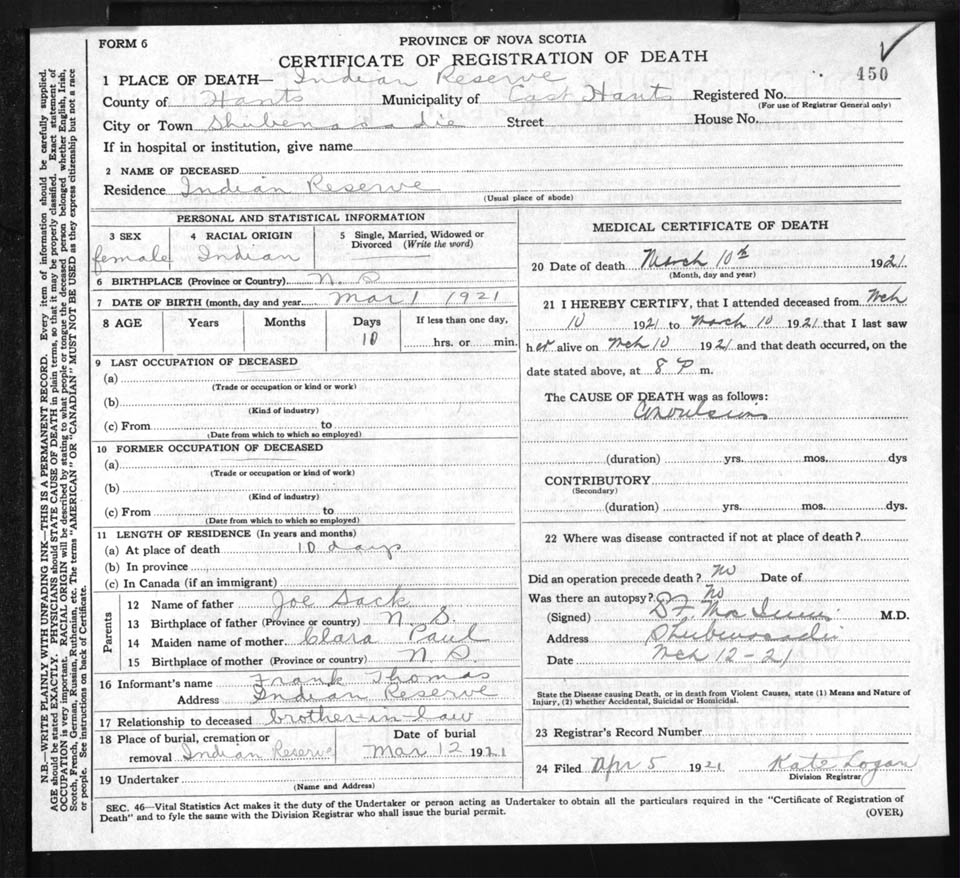 FORM 6
PROVINCE OF NOVA SCOTIA
CERTIFICATE OF REGISTRATION OF DEATH
450
1 PLACE OF DEATH— Indian Reserve
County of Hants Municipality of East Hants Registered No.
(For use of Registrar General only)
City or Town Shubenacadie Street House No.
If in hospital or institution, give name
2 NAME OF DECEASED
Residence Indian Reserve
(Usual place of abode)
PERSONAL AND STATISTICAL INFORMATION
3 SEX 4 RACIAL ORIGIN 5 Single, Married, Widowed or
Divorced (Write the word)
female Indian
6 BIRTHPLACE (Province or Country) N. S.
7 DATE OF BIRTH (month, day and year Mar 1 1921
8 AGE Years Months Days If less than one day,
10 hrs. or min.
9 LAST OCCUPATION OF DECEASED
(a)
(Trade or occupation or kind or work)
(b)
(Kind of industry)
(c) From to
(Date from which to which so employed)
10 FORMER OCCUPATION OF DECEASED
(a)
(Trade or occupation or kind of work)
(b)
(Kind of industry)
(c) From to
(Date from which to which so employed)
11 LENGTH OF RESIDENCE (In years and months)
(a) At place of death 10 days
(b) In province
(c) In Canada (if an immigrant)
Parents
12 Name of father Joe Sack
13 Birthplace of father (Province or country) N. S.
14 Maiden name of mother Clara Paul
15 Birthplace of mother (Province or country) N. S.
16 Informant's name Frank Thomas
Address Indian Reserve
17 Relationship to deceased brother-in-law
18 Place of burial, cremation or Date of burial
removal Indian Reserve Mar 12 1921
19 Undertaker
(Name and Address)
MEDICAL CERTIFICATE OF DEATH
20 Date of death March 10th 1921
(Month, day and year)
21 I HEREBY CERTIFY, that I attended deceased from Mch
10 1921 to March 10 1921 that I last saw
her alive on Mch 10 1921 and that death occurred, on the
date stated above, at 8 P m.
The CAUSE OF DEATH was as follows:
Convulsions
(duration) yrs. mos. dys
CONTRIBUTORY
(Secondary)
(duration) yrs. mos. dys.
22 Where was disease contracted if not at place of death?
Did an operation precede death? No Date of
Was there an autopsy? No
(Signed) M.D.
Address Shubenacadie
Date Mch 12-21
State the Disease causing Death, or in death from Violent Causes, state (1) Means and Nature of
Injury, (2) whether Accidental, Suicidal or Homicidal.
23 Registrar's Record Number
24 Filed Apr 5 1921 Kate Logan
Division Registrar
SEC. 46—Vital Statistics Act makes it the duty of the Undertaker or person acting as Undertaker to obtain all the particulars required in the "Certificate of Registration of
Death" and to fyle the same with the Division Registrar who shall issue the burial permit. (OVER)
N.B.—WRITE PLAINLY WITH UNFADING INK—THIS IS A PERMANENT RECORD. Every item of information should be carefully supplied.
AGE should be stated EXACTLY. PHYSICIANS should STATE CAUSE OF DEATH in plain terms, so that it may be properly classified. Exact statement of
OCCUPATION is very important. RACIAL ORIGIN will be described by stating to what people or tongue the deceased person belonged whether English, Irish,
Scotch, French, German, Russian, Ruthenian, etc. The terms "AMERICAN" OR "CANADIAN" MUST NOT BE USED as they express citizenship but not a race
or people. See instructions on back of Certificate.